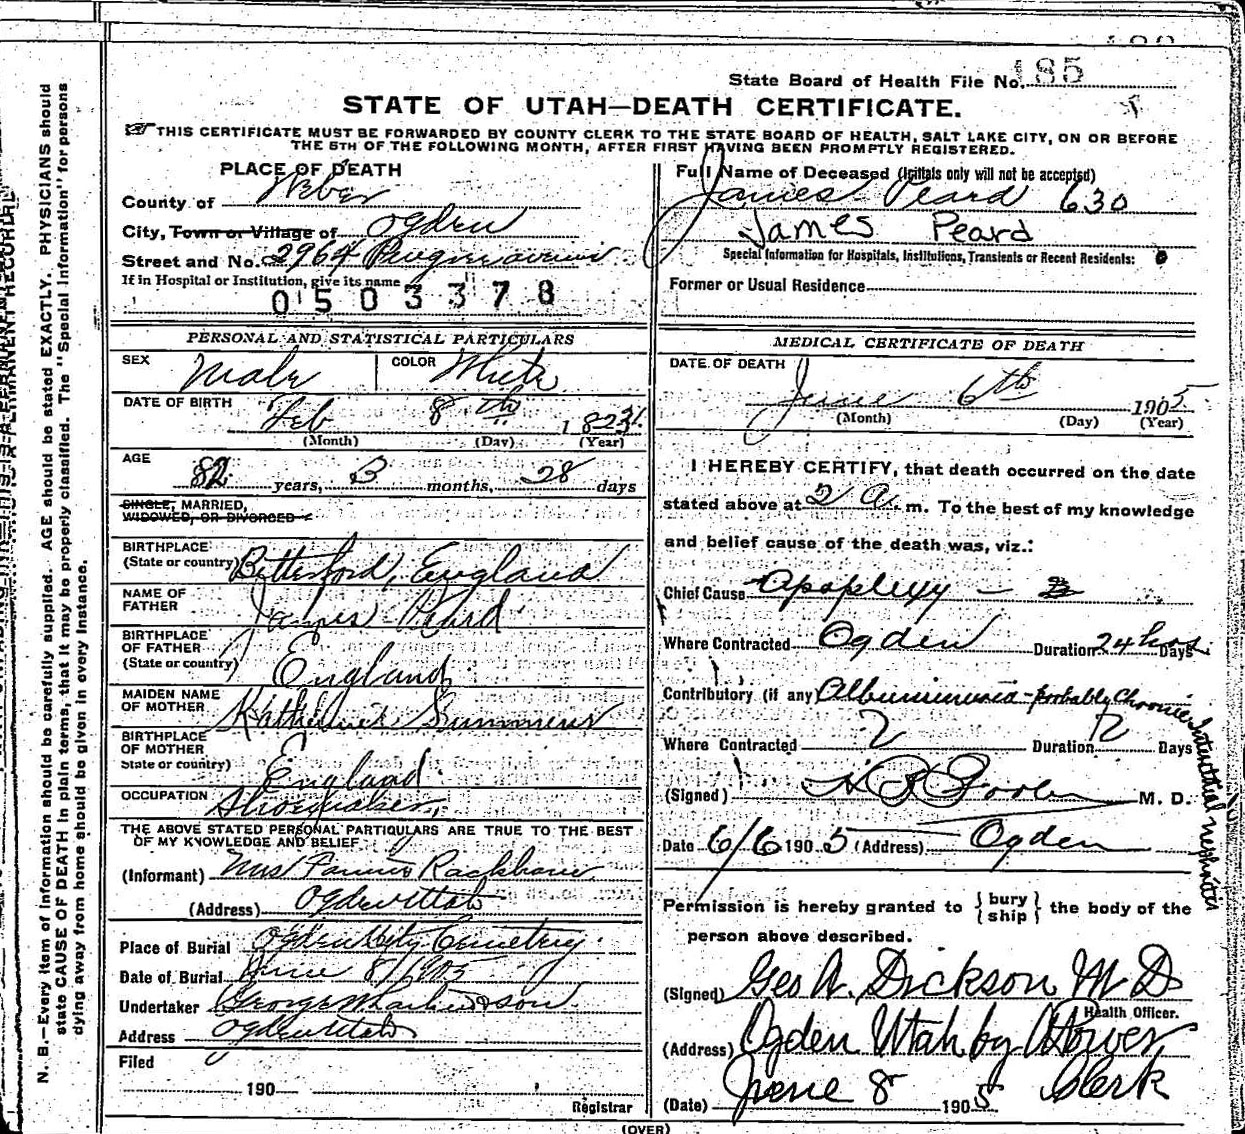 185
State Board of Health File No.
STATE OF UTAH—DEATH CERTIFICATE.
THIS CERTIFICATE MUST BE FORWARDED BY COUNTY CLERK TO THE STATE BOARD OF HEALTH, SALT LAKE CITY, ON OR BEFORE
THE 5TH OF THE FOLLOWING MONTH, AFTER FIRST HAVING BEEN PROMPTLY REGISTERED.
PLACE OF DEATH
County of Weber
City, Town or Village of Ogden
Street and No. 2964 avenue
If in Hospital or Institution, give its name
0503378
Full Name of Deceased (Initials only will not be accepted)
James Peard 630
James Peard
Special Information for Hospitals, Institutions, Transients or Recent Residents:
Former or Usual Residence
PERSONAL AND STATISTICAL PARTICULARS
SEX Male COLOR White
DATE OF BIRTH Feb 8th 1823
(Month) (Day) (Year)
AGE 82 years, 3 months, 28 days
SINGLE, MARRIED,
WIDOWED, OR DIVORCED
BIRTHPLACE
(State or country) England
NAME OF
FATHER James Peard
BIRTHPLACE
OF FATHER
(State or country) England
MAIDEN NAME
OF MOTHER Summers
BIRTHPLACE
OF MOTHER
State or country) England
OCCUPATION Shoemaker
THE ABOVE STATED PERSONAL PARTICULARS ARE TRUE TO THE BEST
OF MY KNOWLEDGE AND BELIEF
(Informant) Mrs Fannie
(Address) Ogden Utah
Place of Burial Ogden City Cemetery
Date of Burial June 8/1905
Undertaker George & son
Address Ogden Utah
Filed
190
Registrar
MEDICAL CERTIFICATE OF DEATH
DATE OF DEATH
June 6th 1905
(Month) (Day) (Year)
I HEREBY CERTIFY, that death occurred on the date
stated above at 2 A. m. To the best of my knowledge
and belief cause of the death was, viz.:
Chief Cause Apoplexy
Where Contracted Ogden Duration 24 hrs Days
Contributory (if any) Albuminuria - probably Chronic Interstitial nephritis
Where Contracted ? Duration ? Days
(Signed) M. D.
Date 6/6 1905 (Address) Ogden
Permission is hereby granted to { bury ship } the body of the
person above described.
(Signed) Geo A. Dickson M D
Health Officer.
(Address) Ogden Utah by
Clerk
(Date) June 8 1905
(OVER)
N. B.—Every item of information should be carefully supplied. AGE should be stated EXACTLY. PHYSICIANS should
state CAUSE OF DEATH in plain terms, that it may be properly classified. The "Special Information" for persons
dying away from home should be given in every instance.